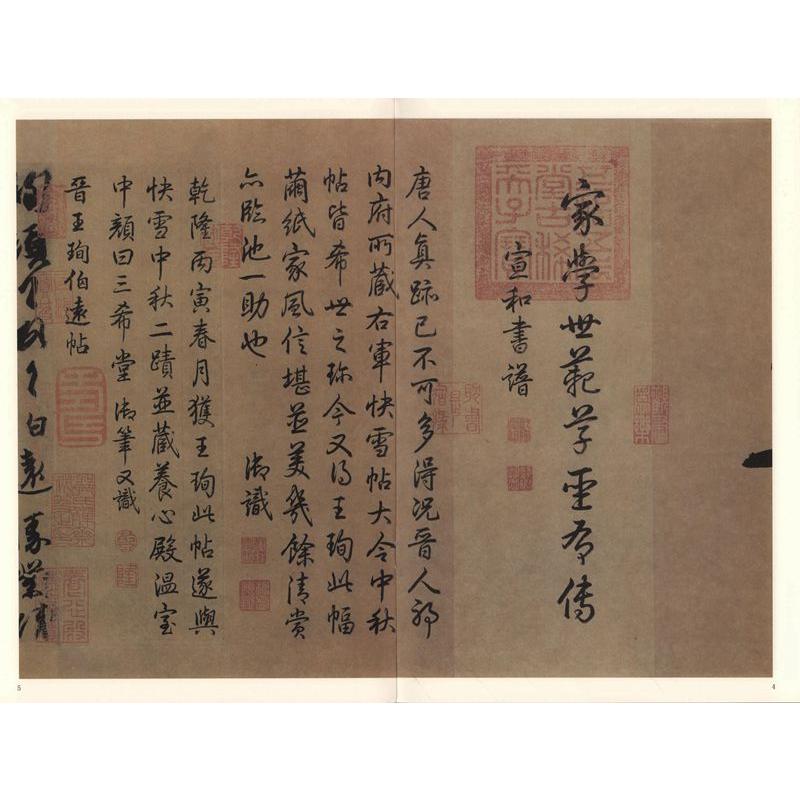 家學世範草聖有傳
宣和書譜
唐人真跡已不可多得況晉人耶
內府所藏右軍快雪帖大令中秋
帖皆希世之珍今又得王珣此幅
繭紙家風信堪並美幾餘清賞
亦臨池一助也 御識
乾隆丙寅春月獲王珣此帖遂與
快雪中秋二蹟並藏養心殿溫室
中顏曰三希堂御筆又識
晉王珣伯遠帖
珣頓首頓首伯遠勝業情
4
5